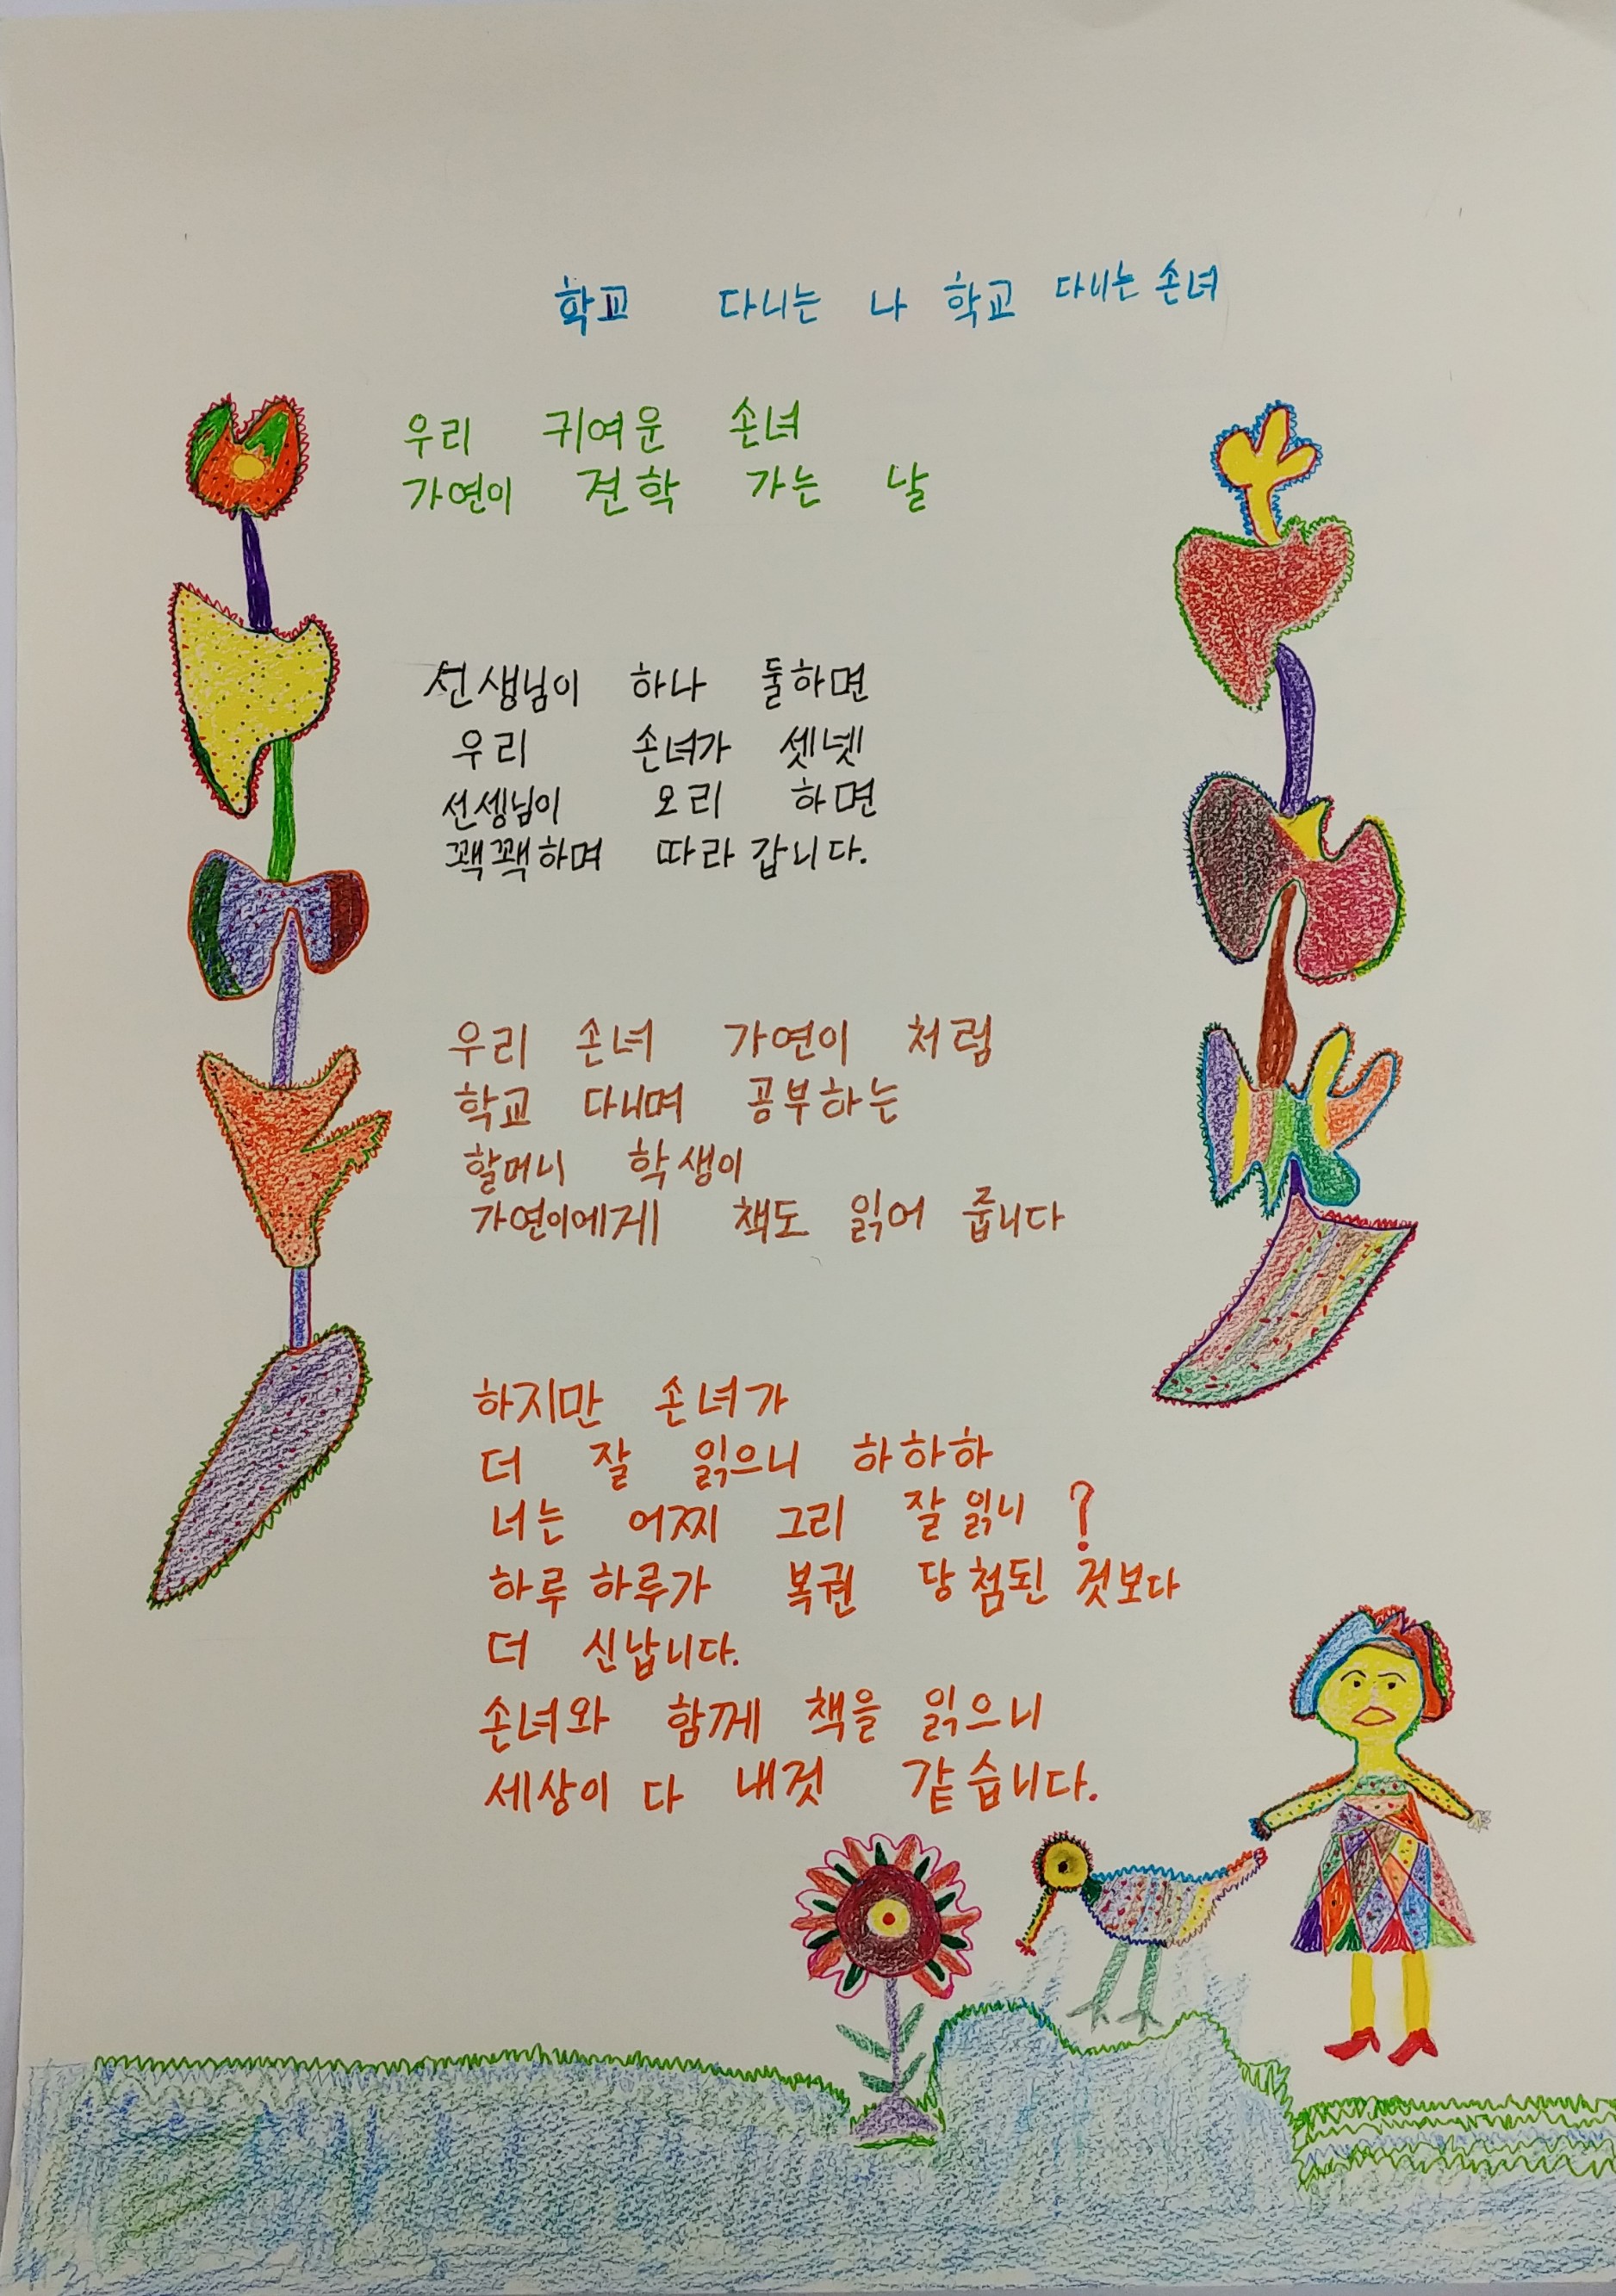 학교 다니는 나 학교 다니는 손녀
우리 귀여운 손녀
가연이 견학 가는 날
선생님이 하나 둘하면
우리 손녀가 셋넷
선셍님이 오리 하면
꽥꽥하며 따라 갑니다.
우리 손녀 가연이 처럼
학교 다니며 공부하는
할머니 학생이
가연이에게 책도 읽어 줍니다
하지만 손녀가
더 잘 읽으니 하하하
너는 어찌 그리 잘 읽니 ?
하루 하루가 복권 당첨된 것보다
더 신납니다.
손녀와 함께 책을 읽으니
세상이 다 내것 같습니다.